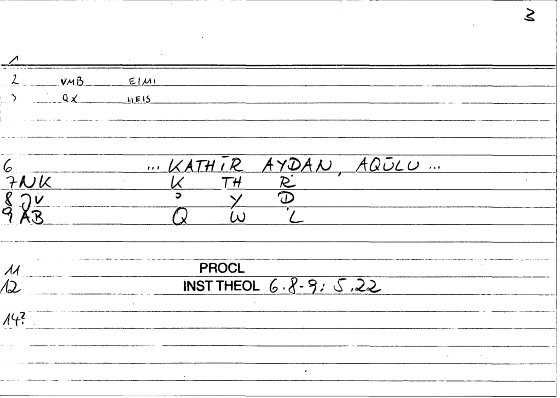 3
1
2 VMB EIMI
3 QX HEIS
6 ... KATHĪR AYDAN, AQŪLU ...
7 NK K TH R
8 JV ʾ Y D
9 AB Q W L
11 PROCL
12 INST THEOL 6.8-9; 5.22
14?